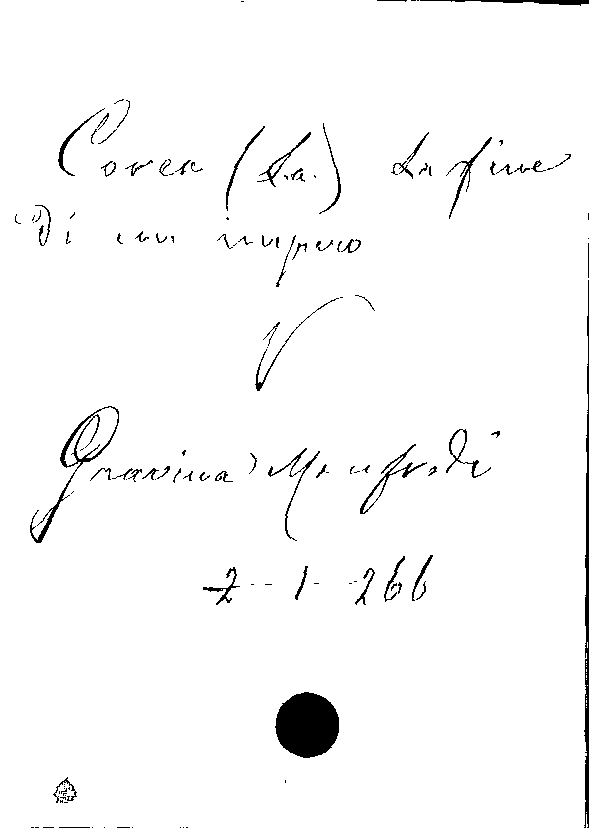 Corea (La) La fine
di un impero
V
Gravina Manfredi
2-1-266